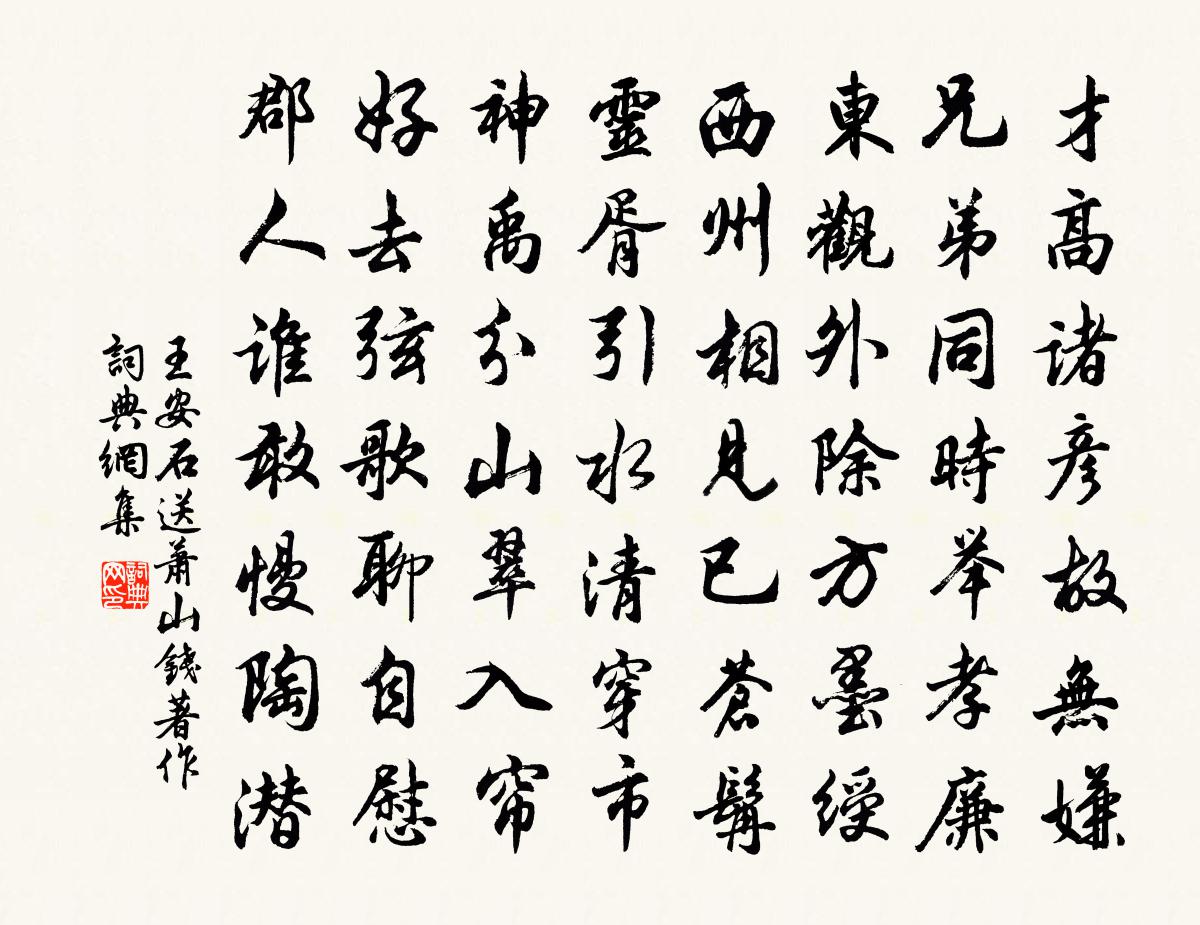 才高诸彦故無嫌
兄弟同時举孝廉
東觀外除方墨綬
西州相見已蒼髯
靈胥引水清穿市
神禹分山翠入帘
好去弦歌聊自慰
郡人谁敢慢陶潜
王安石送萧山錢著作
詞典網集
詞典网印